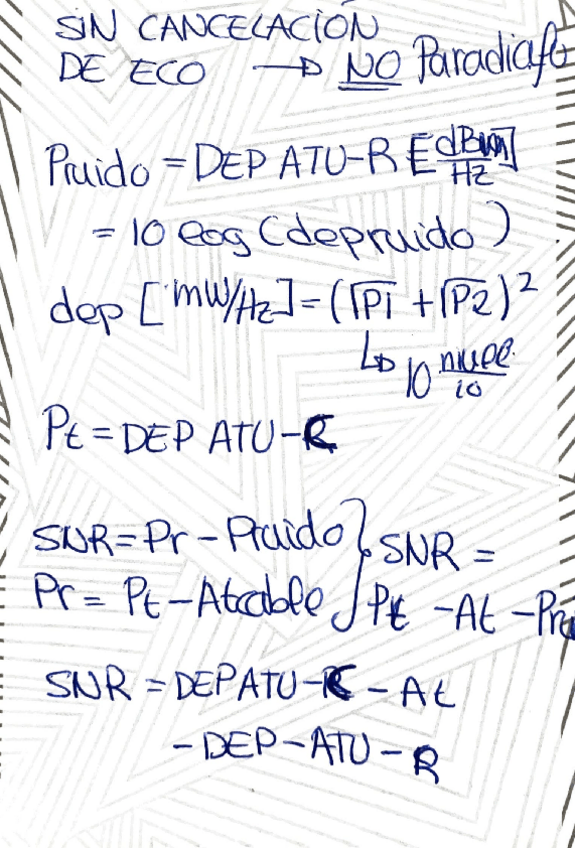 SIN CANCELACIÓN
DE ECO → NO Paradiafo
Pruido = DEP ATU-R [dBm/Hz]
= 10 log (depruido)
dep [mW/Hz] = (√P1 + √P2)²
↳ 10 nivel/10
Pt = DEP ATU-C
SNR = Pr - Pruido } SNR =
Pr = Pt - Atcable } Pt - At - Pru
SNR = DEPATU-C - At
- DEP-ATU-R